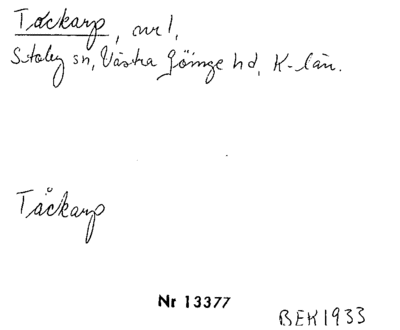 Tåckarp, nr 1,
Stoby sn, Västra Göinge hd, K-län.
Tåckarp
Nr 13377
BEK1933